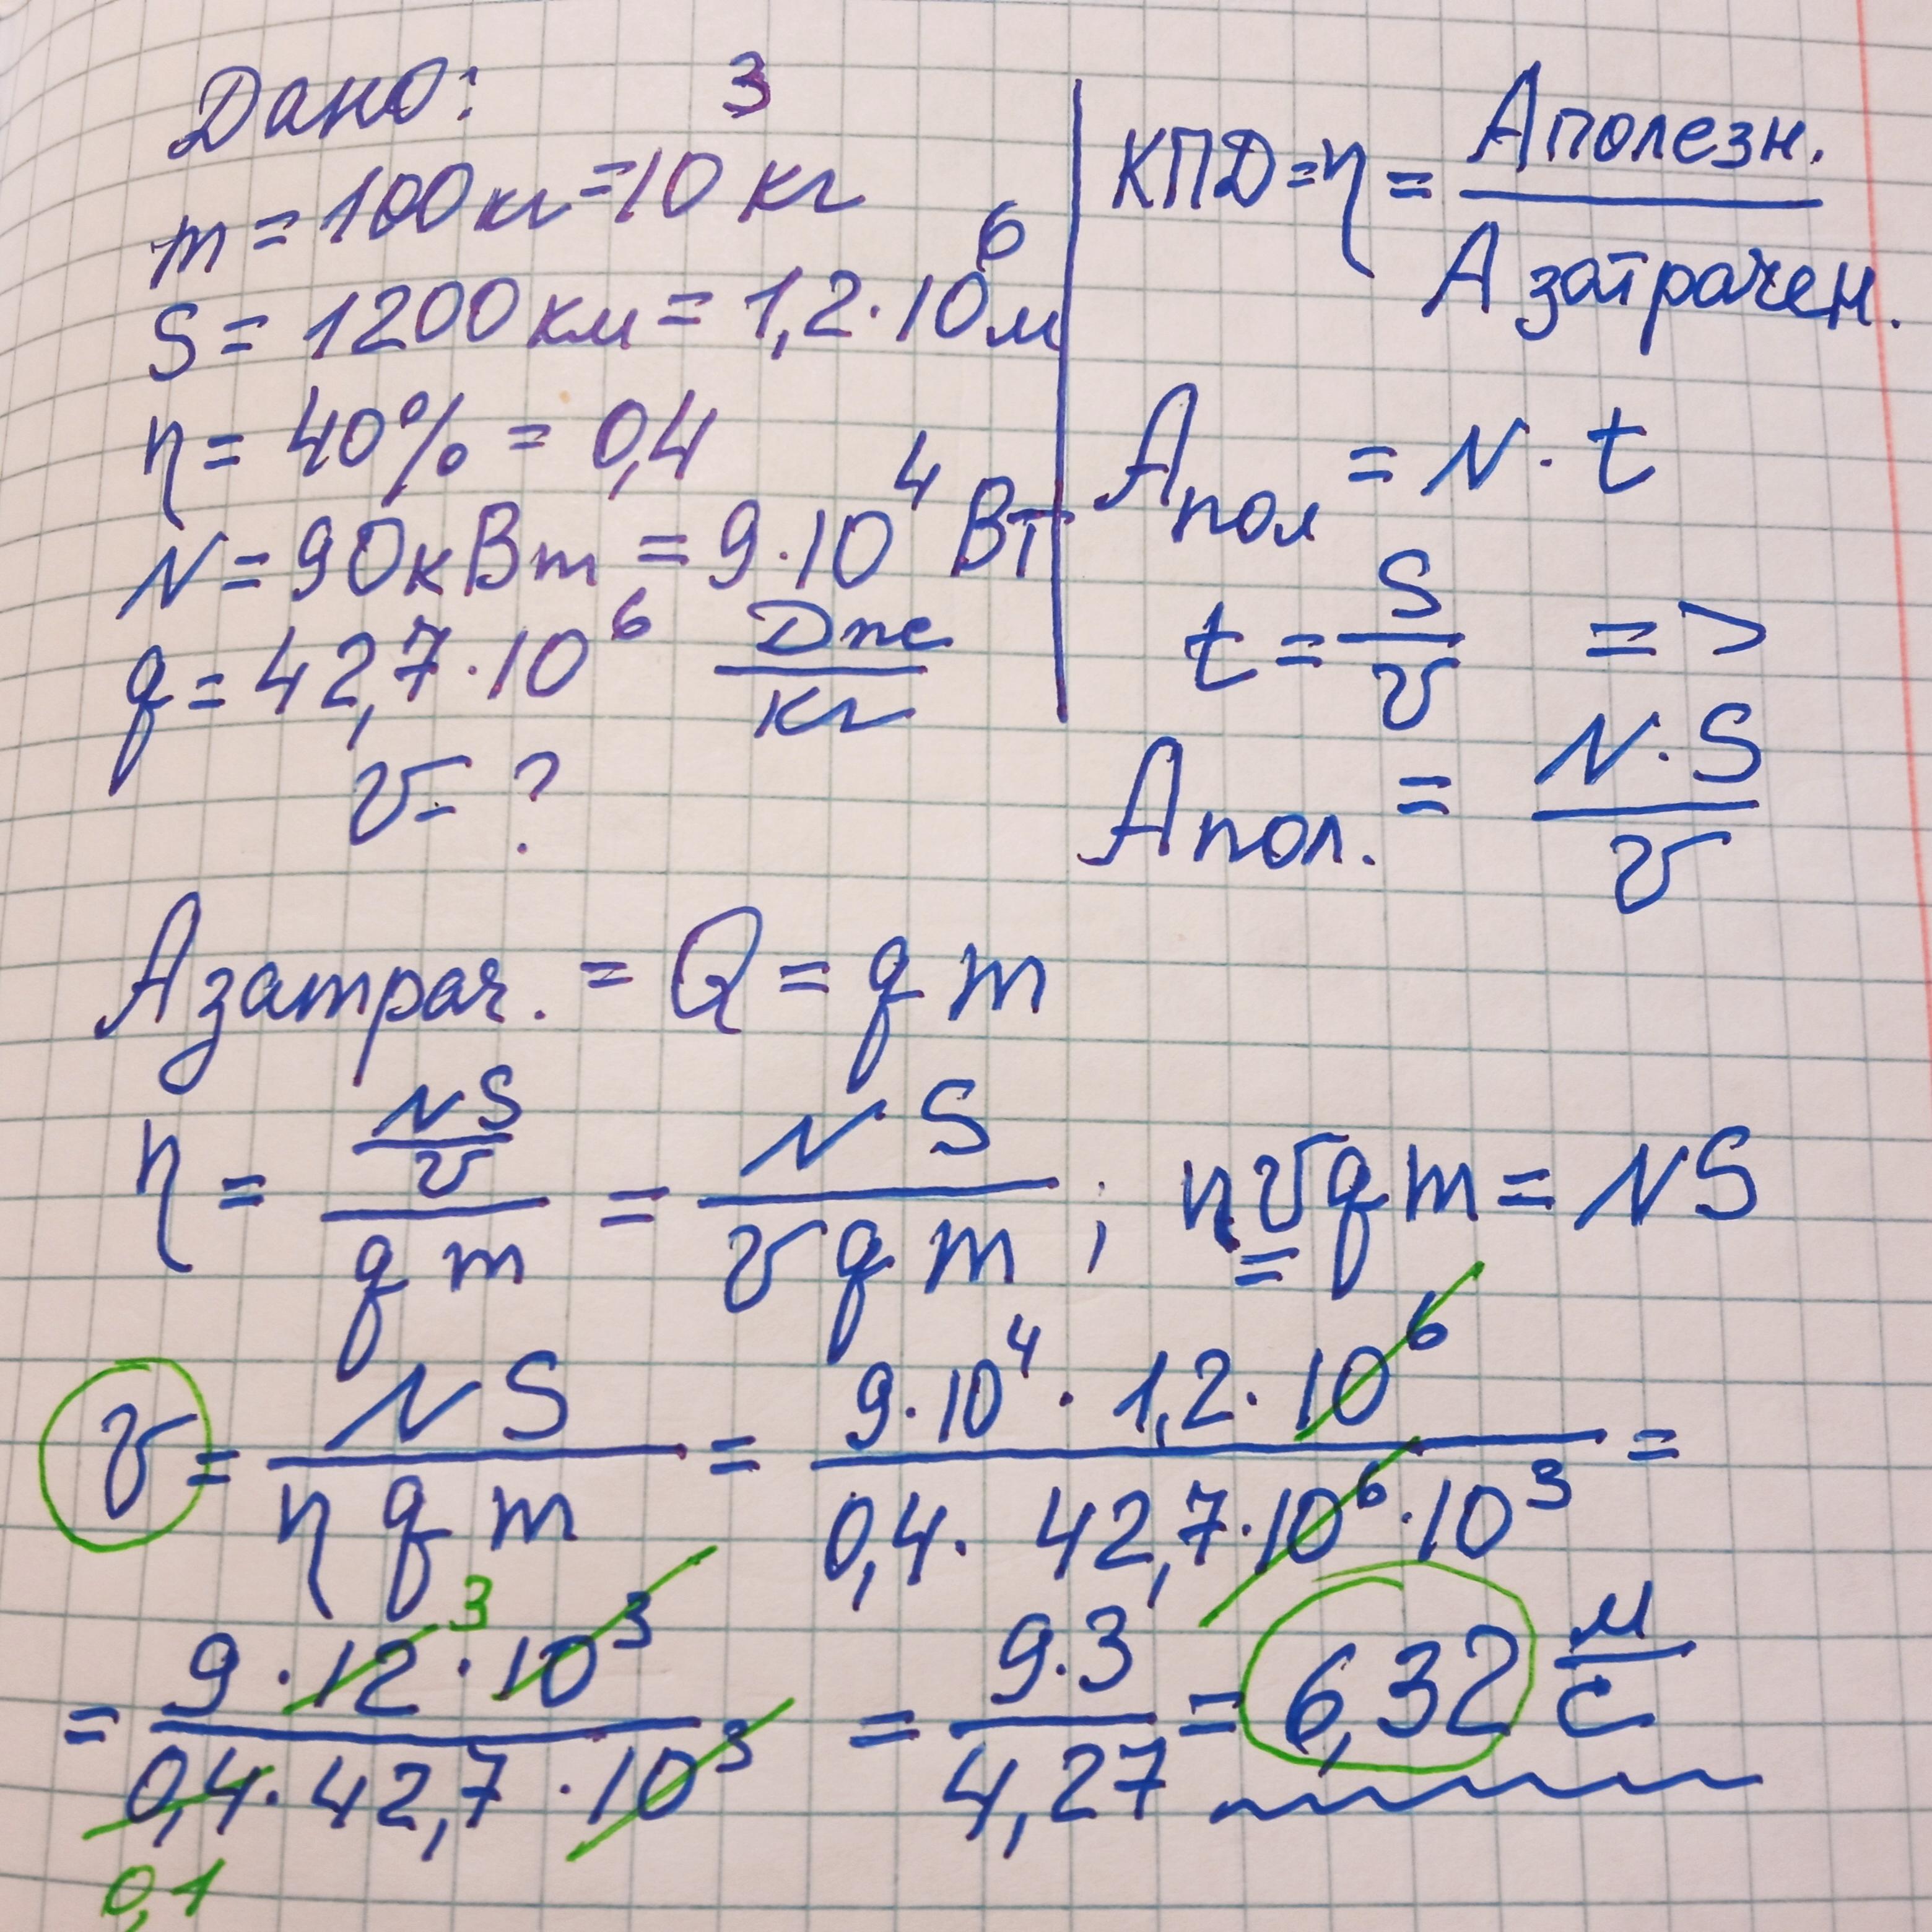 Дано:
m = 100кг = 10³ кг
S = 1200 км = 1,2·10⁶ м
η = 40% = 0,4
N = 90кВт = 9·10⁴ Вт
q = 42,7·10⁶ Дж/кг
v = ?
КПД = η = Aполезн. / Aзатрачен.
Aпол = N · t
t = S/v =>
Aпол. = N·S / v
Aзатрач. = Q = q m
η = (NS/v) / (q m) = N S / (v q m) ; η v q m = NS
v = N S / (η q m) = 9·10⁴ · 1,2·10⁶ / (0,4 · 42,7·10⁶ · 10³) =
= 9 · 12 3 · 10³ / (0,4 · 42,7 · 10³) = 9·3 / 4,27 = 6,32 м/с
0,1